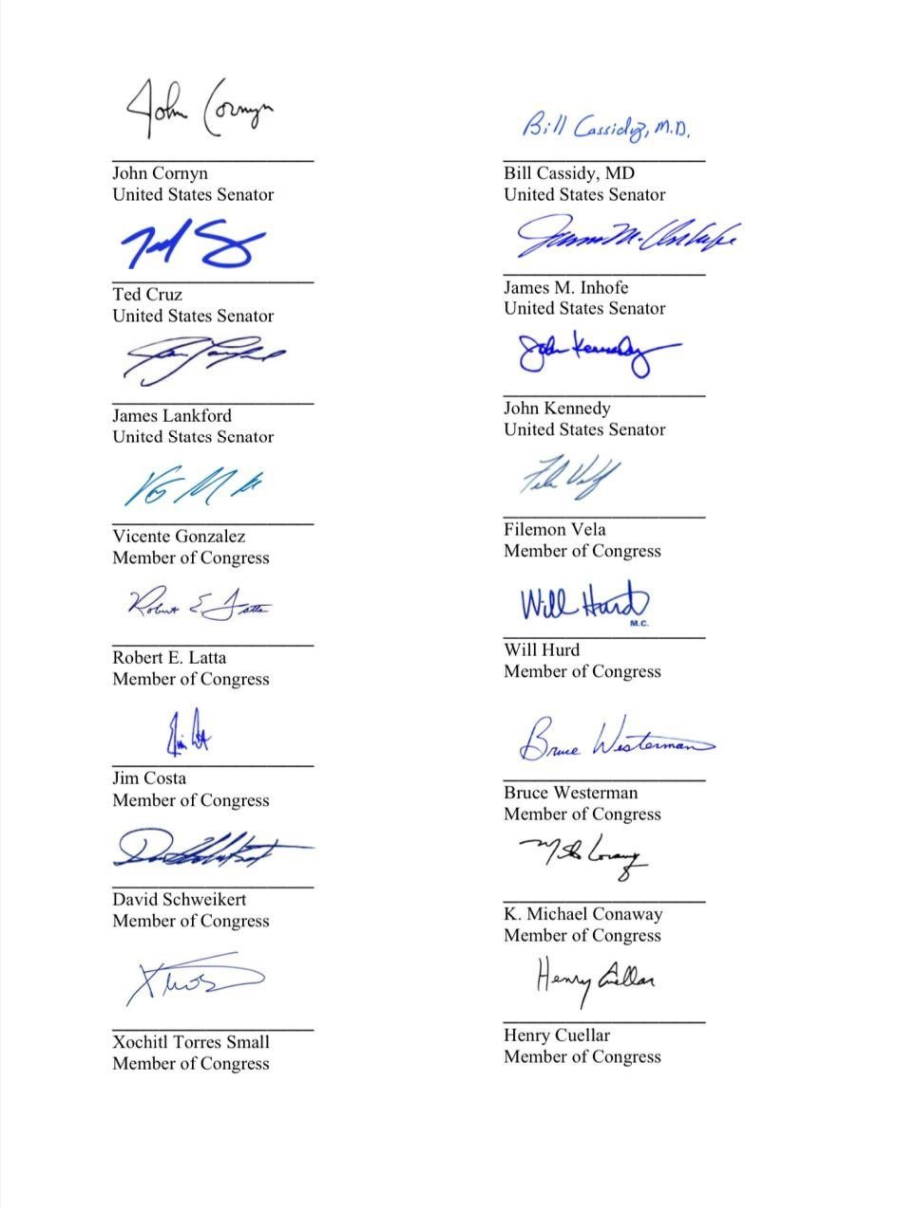 John Cornyn
John Cornyn
United States Senator
Ted Cruz
United States Senator
James Lankford
United States Senator
Vicente Gonzalez
Member of Congress
Robert E Latta
Robert E. Latta
Member of Congress
Jim Costa
Member of Congress
David Schweikert
Member of Congress
Xochitl Torres Small
Member of Congress
Bill Cassidy, M.D.
Bill Cassidy, MD
United States Senator
James M. Inhofe
James M. Inhofe
United States Senator
John Kennedy
John Kennedy
United States Senator
Filemon Vela
Member of Congress
Will Hurd
M.C.
Will Hurd
Member of Congress
Bruce Westerman
Bruce Westerman
Member of Congress
K. Michael Conaway
Member of Congress
Henry Cuellar
Henry Cuellar
Member of Congress